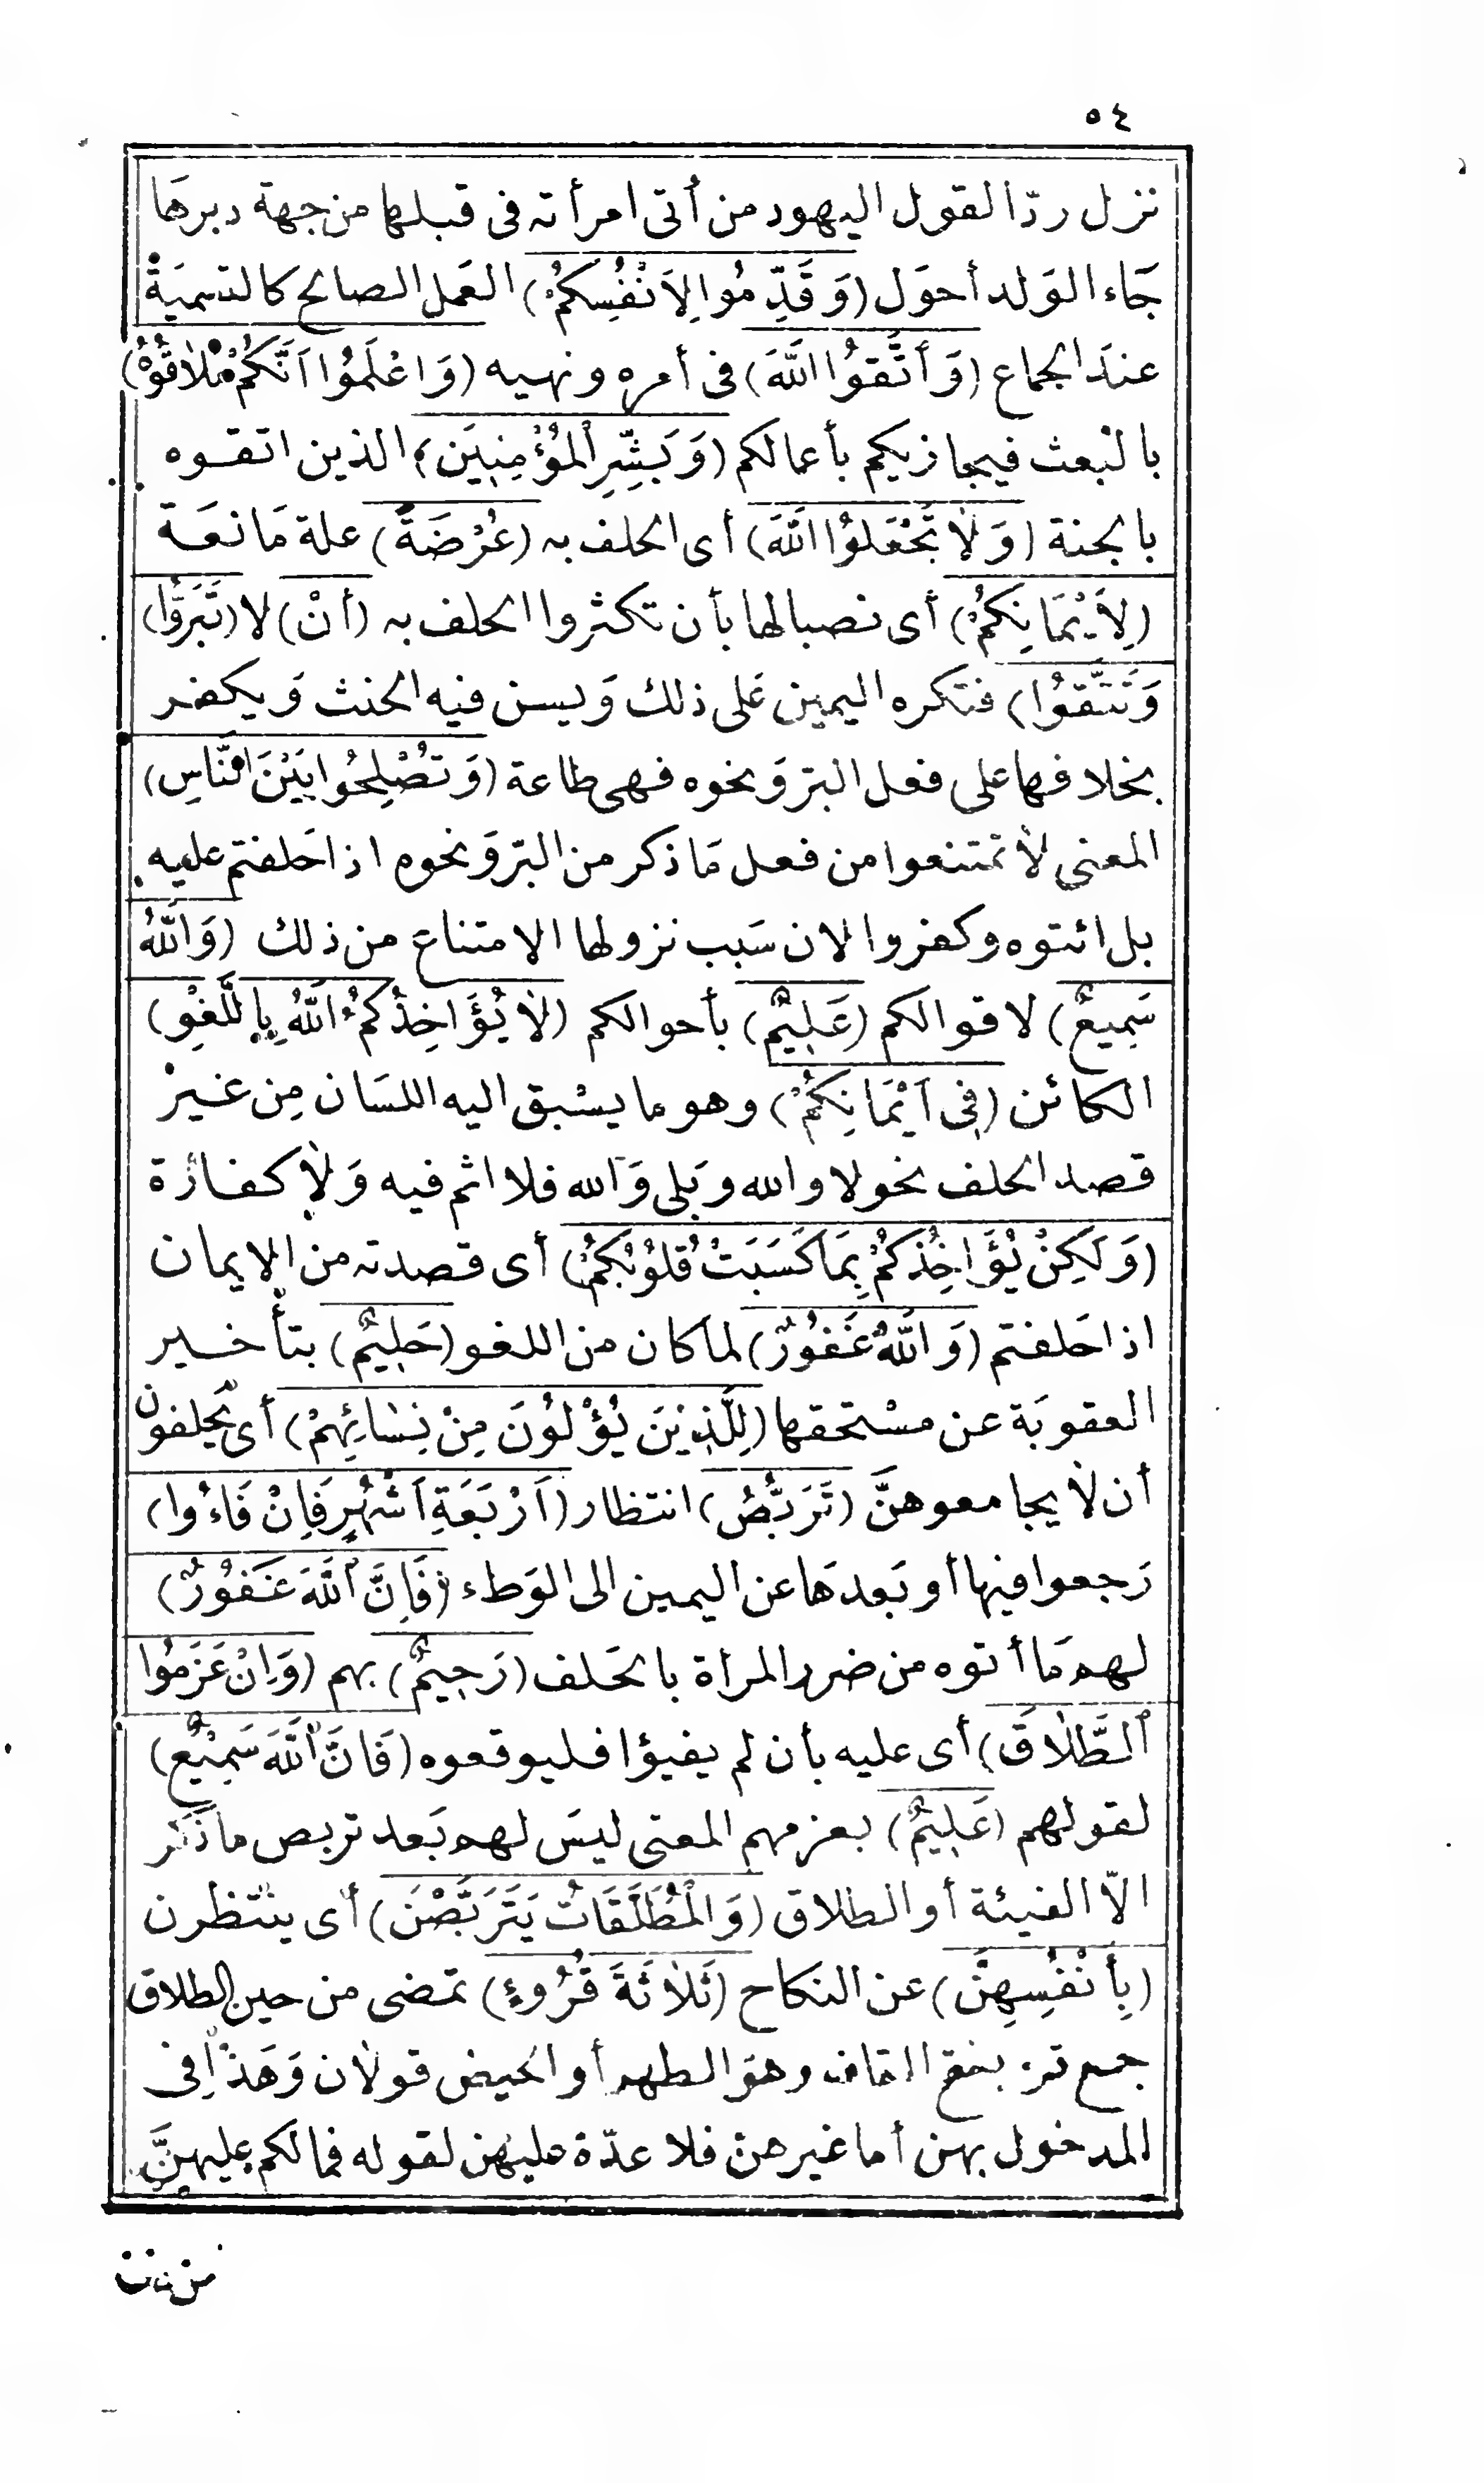 ٥٤
نزل ردّا لقول اليهود من أتى امرأته فى قبلها من جهة دبرهَا
جَاء الوَلد أحوَل (وَقَدِّمُوا لِاَنْفُسِكُمْ) العَمل الصالح كالتسميَة
عندَ الجماع (وَأتَّقوُا اللّٰهَ) فى أمره ونهيه (وَاعْلَمُوا اَنَّكُمْ مُلَاقُوْهُ)
بالبَعث فيجازيكم بأعمالكم (وَبَشِّرِ الْمُؤْمِنِيَن) الذين اتقوه
بالجنة (وَلَا تَجْعَلوُا اللّٰهَ) أى الحلف به (عُرْضَةً) علة مَانعَة
(لِاَيْمَانِكُمْ) أى نصبا لها بأن تكثروا الحلف به (أنْ) لا (تَبَرُّوا)
وَتَتَّقوُا) فتكره اليمين عَلى ذلك وَيسن فيه الحنث وَيكفر
بخلافها على فعل البرّ وَنحوه فهى طاعة (وَتُصْلِحُوا بَيْنَ النَّاسِ)
المعنى لَا تمتنعوا من فعل مَا ذكر من البرّ وَنحوه اذا حَلفتم عليه
بل ائتوه وكفروا لان سَبب نزولها الامتناع من ذلك (وَاللّٰهُ
سَمِيعٌ) لاقوالكم (عَلِيمٌ) بأحوالكم (لَا يُؤَاخِذُكُمُ اللّٰهُ بِاللَّغْوِ)
الكائن (فِى اَيْمَانِكُمْ) وهو ما يسْبق اليه اللسَان مِن غير
قصد الحلف نحو لا والله وبَلى وَالله فلا اثم فيه وَلَا كفارَة
(وَلَكِنْ يُؤَاخِذُكُمْ بِمَا كَسَبَتْ قُلوُبُكُمْ) أى قصدته من الايمان
اذا حَلفتم (وَاللّٰهُ غَفوُرٌ) لما كان من اللغو (حَلِيمٌ) بتأخير
العقوبَة عن مسْتحقها (لِلَّذِيْنَ يُؤْلوُنَ مِنْ نِسَائِهِمْ) أى يَحلفون
أن لَا يجامعوهنَّ (تَرَبُّصُ) انتظار (اَرْبَعَةِ اَشْهُرٍ فَاِنْ فَاءُوا)
رَجعوا فيها أو بَعدهَا عن اليمين الى الوَطء (فَاِنَّ اللّٰهَ غَفوُرٌ)
لهم مَا أتوه من ضرر المرأة بالحَلف (رَحِيمٌ) بهم (وَاِنْ عَزَمُوا
الطَّلَاقَ) أى عليه بأن لم يفيؤا فليوقعوه (فَاِنَّ اللّٰهَ سَمِيْعٌ)
لقولهم (عَلِيمٌ) بعزمهم المعنى ليسَ لهم بَعد تربص ما ذَكر
الاّ الفيئة أو الطلاق (وَالْمُطَلَّقَاتُ يَتَرَبَّصْنَ) أى ينتظرن
(بِأَنْفُسِهِنَّ) عن النكاح (ثَلَاثَةَ قُرُوءٍ) تمضى من حين الطلاق
جمع قرء بفتح القاف وهوَ الطهر أو الحيض قولَان وَهَذا فِى
المدخول بهن أما غيرهن فلا عدّة عليهن لقوله فمالكم عليهنَّ